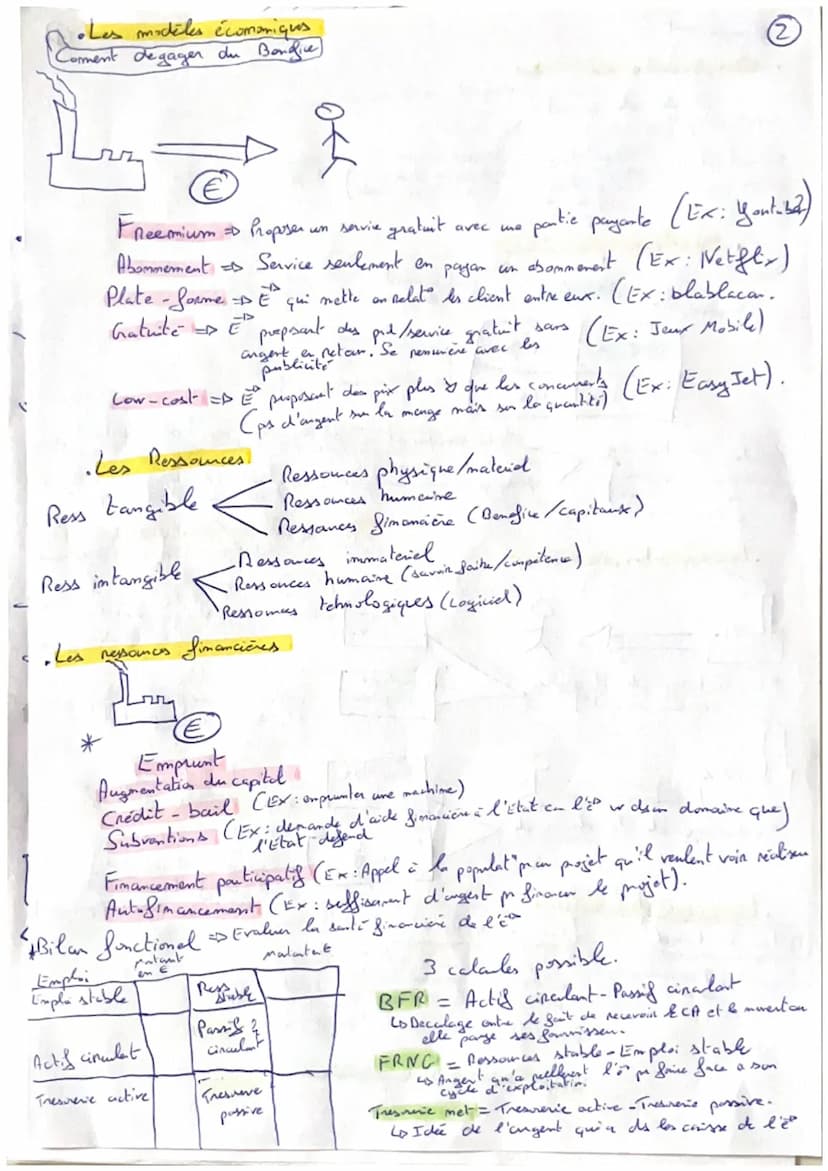 ②
. Les modèles économiques
Comment degager du Benefice
€
Freemium => Proposer un servie gratuit avec une partie payante (Ex: Youtube)
Abonnement => Service seulement en payan un abonnement (Ex: Netflix)
Plate-forme => E qui mette en relat° les client entre eux. (Ex: blablacar.
Gratuité => E proposant des pdt/service gratuit sans (Ex: Jeux Mobile)
argent en retour. Se remunère avec les
publicité
Low-cost => E proposent des prix plus ↘ que les concurrents (Ex: EasyJet).
(ps d'argent sur la marge mais sur la quantité)
. Les Ressources
Ress tangible
Ressources physique/materiel
Ressources humaine
Ressources financière (Benefice/capitaux)
Ress intangible
Ressources immateriel
Ressources humaine (savoir faire/compétence)
Ressources tehnologiques (Logiciel)
. Les ressources financières
€
*
Emprunt
Augmentation du capital
Crédit-bail (Ex: emprunter une machine)
Subventions (Ex: demande d'aide financière à l'Etat car l'E dans domaine que)
l'Etat defend
Financement participatif (Ex: Appel à la populat° pr un projet qu'il veulent voir réaliser
Autofinancement (Ex: suffisament d'argent pr financer le projet).
*Bilan fonctionel => Evaluer la santé financière de l'E
Emploi
montant en €
montant €
Emploi stable
Ress stable
Actif circulant
Passif circulant
Tresorerie active
Tresorerie passive
3 calcules possible.
BFR = Actif circulant - Passif circulant
↳ Decalage entre le fait de recevoir le CA et le moment ou
elle paye ses fournisseur.
FRNG = Ressources stable - Emploi stable
↳ Argent qu'a l'E pr faire face a son
cycle d'exploitation.
Tresorerie net = Tresorerie active - Tresorerie passive.
↳ Idée de l'argent qu'il a ds les caisse de l'E